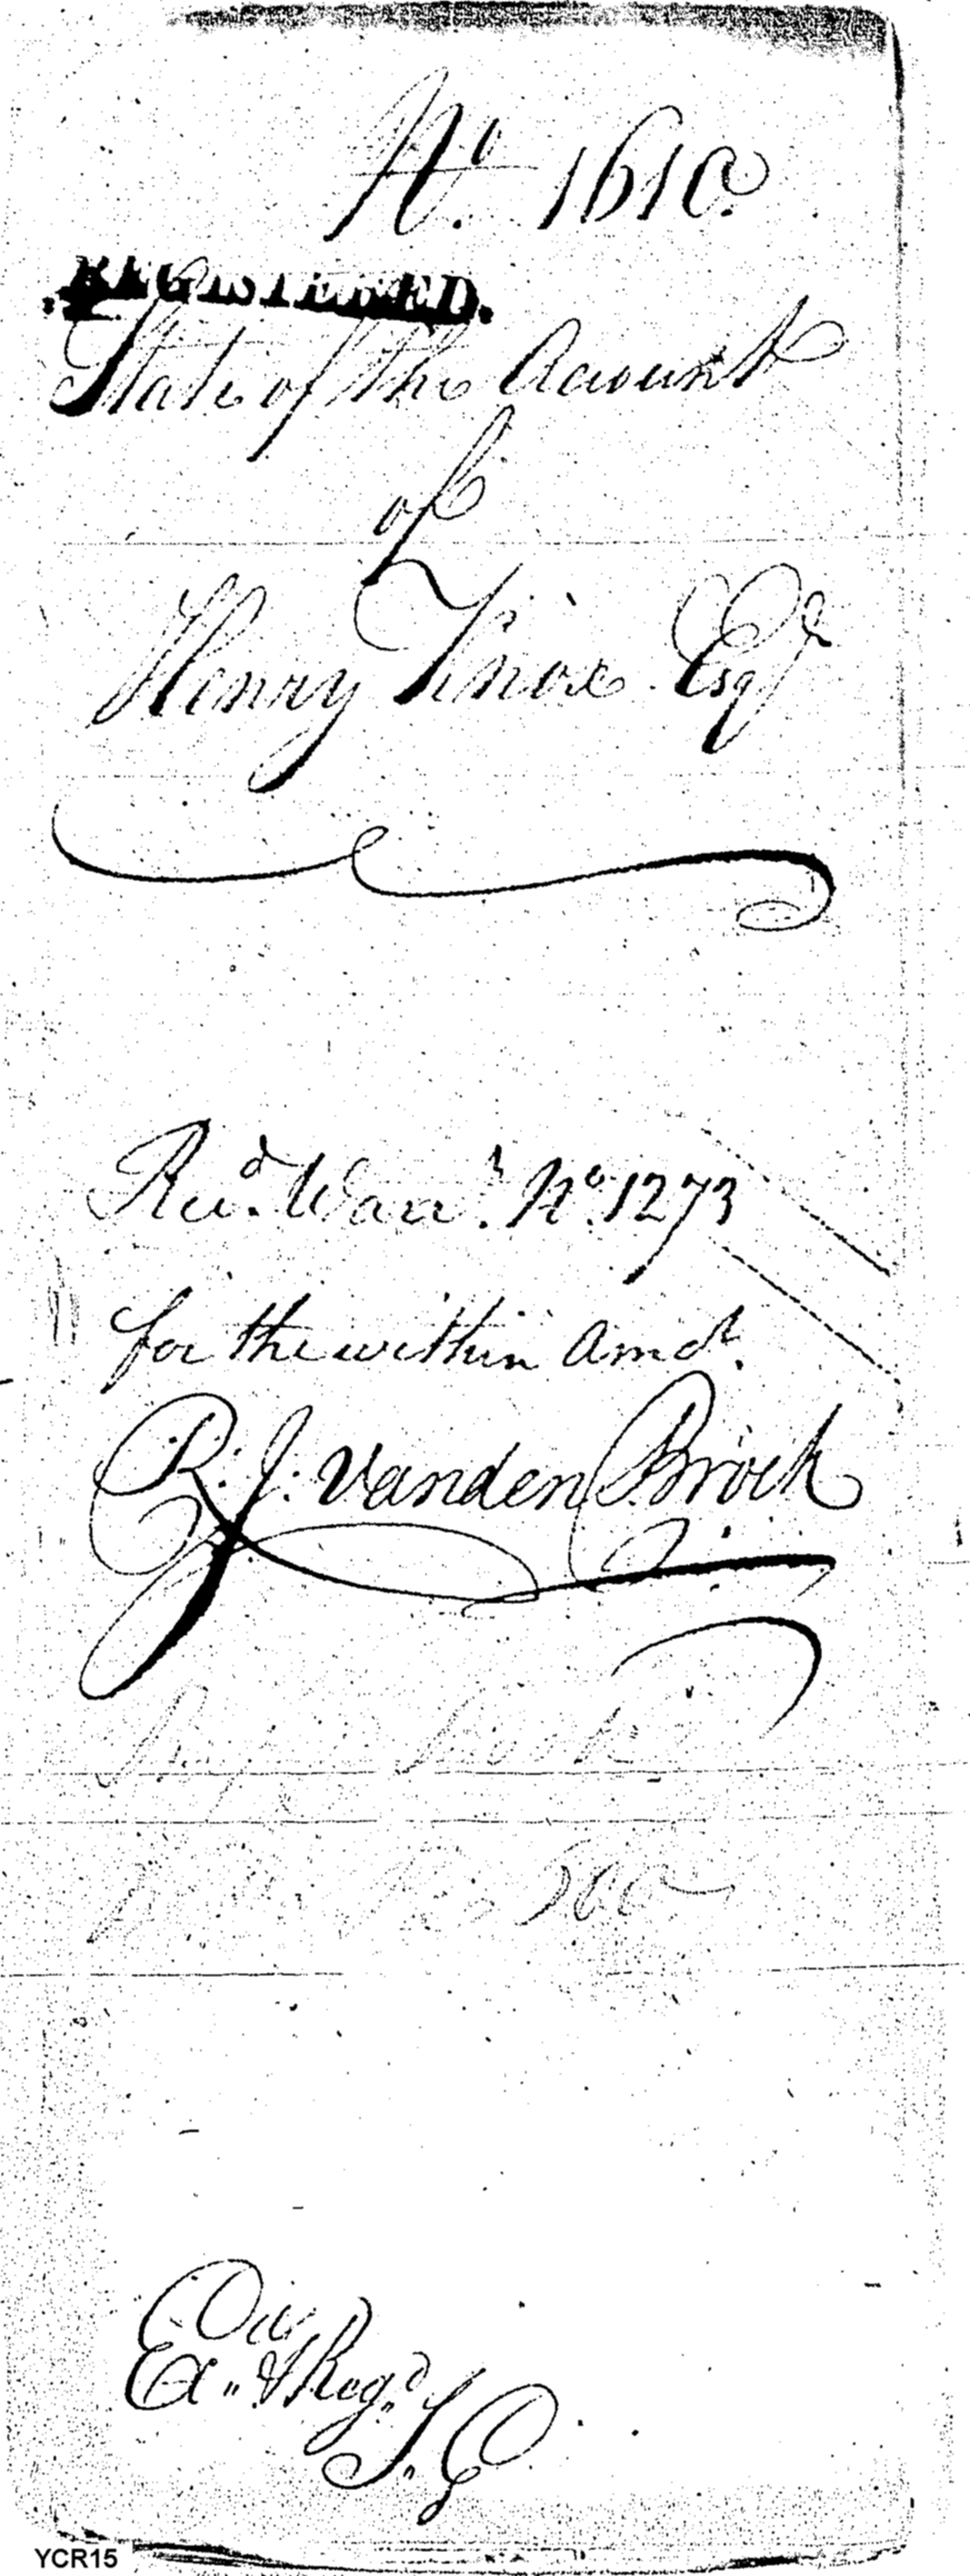 No. 1610.
.REGISTERED.
State of the Account
of
Henry Knox Esqr
Recd. Warrt. No. 1273
for the within Amot.
R. J. Vanden Broek
500
Ex. & Regd.
J. G
YCR15